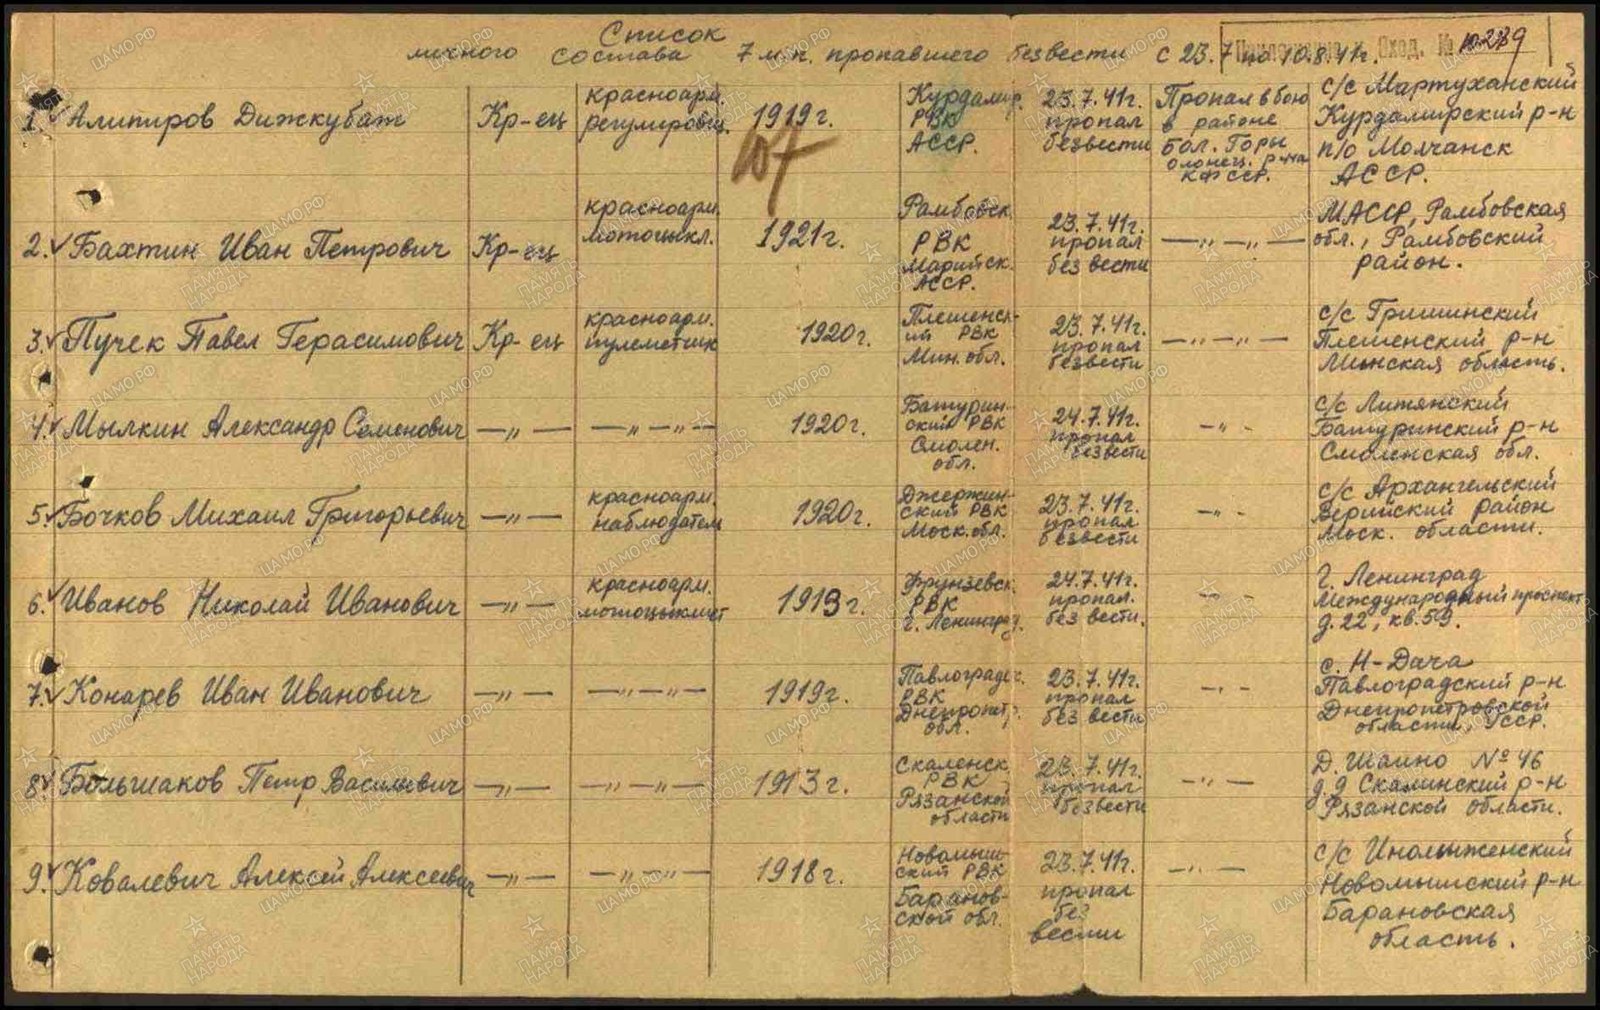 Список
личного состава 7 м.п. пропавшего без вести с 23.7 по 10.8.41г.
Вход. № 10289
1. Алипиров Дижкубат
Кр-ец
красноарм.
регулировщ.
1919г.
107
Курдамир.
РВК
АССР.
23.7.41г.
пропал
безвести
Пропал в бою
в районе
бол. Горы
олонец. р-на
КФССР.
с/с Мартуханский
Курдамирский р-н
п/о Молчанск
АССР.
2. Бахтин Иван Петрович
Кр-ец
красноарм.
мотоцыкл.
1921г.
Рамбовск.
РВК
Марийск.
АССР.
23.7.41г.
пропал
без вести
— „ — „ —
МАССР, Рамбовская
обл., Рамбовский
район.
3. Пучек Павел Герасимович
Кр-ец
красноарм.
пулеметчик
1920г.
Плешенск-
ий РВК
Мин. обл.
23.7.41г.
пропал
безвести
— „ — „ —
с/с Гришинский
Плешенский р-н
Минская область.
4. Мылкин Александр Семенович
— „ —
— „ — „ —
1920г.
Батурин-
ский РВК
Смолен.
обл.
24.7.41г.
пропал
безвести
- „ -
с/с Литянский
Батуринский р-н
Смоленская обл.
5. Бочков Михаил Григорьевич
— „ —
красноарм.
наблюдатель
1920г.
Джержин-
ский РВК
Моск. обл.
23.7.41г.
пропал
безвести
- „ -
с/с Архангельский
Верийский район
Моск. области.
6. Иванов Николай Иванович
— „ —
красноарм.
мотоцыклист
1913г.
Фрунзевск.
РВК
г. Ленинград.
24.7.41г.
пропал.
без вести.
- „ -
г. Ленинград
Международный проспект
д.22, кв.59.
7. Конарев Иван Иванович
— „ —
— „ — „ —
1919г.
Павлоградск.
РВК
Днепропет.
обл.
23.7.41г.
пропал
без вести
- „ -
с. Н-Дача
Павлоградский р-н
Днепропетровской
области, УССР.
8. Большаков Петр Васильевич
— „ —
— „ — „ —
1913г.
Скаленск.
РВК
Рязанской
области
23.7.41г.
пропал
безвести
- „ —
Д. Шаино № 46
д.д Скалинский р-н
Рязанской области.
9. Ковалевич Алексей Алексеевич
— „ —
— „ — „ —
1918г.
Новомыш-
ский РВК
Баранов-
ской обл.
23.7.41г.
пропал
без
вести
— „ —
с/с Инолыженский
Новомышский р-н
Барановская
область.